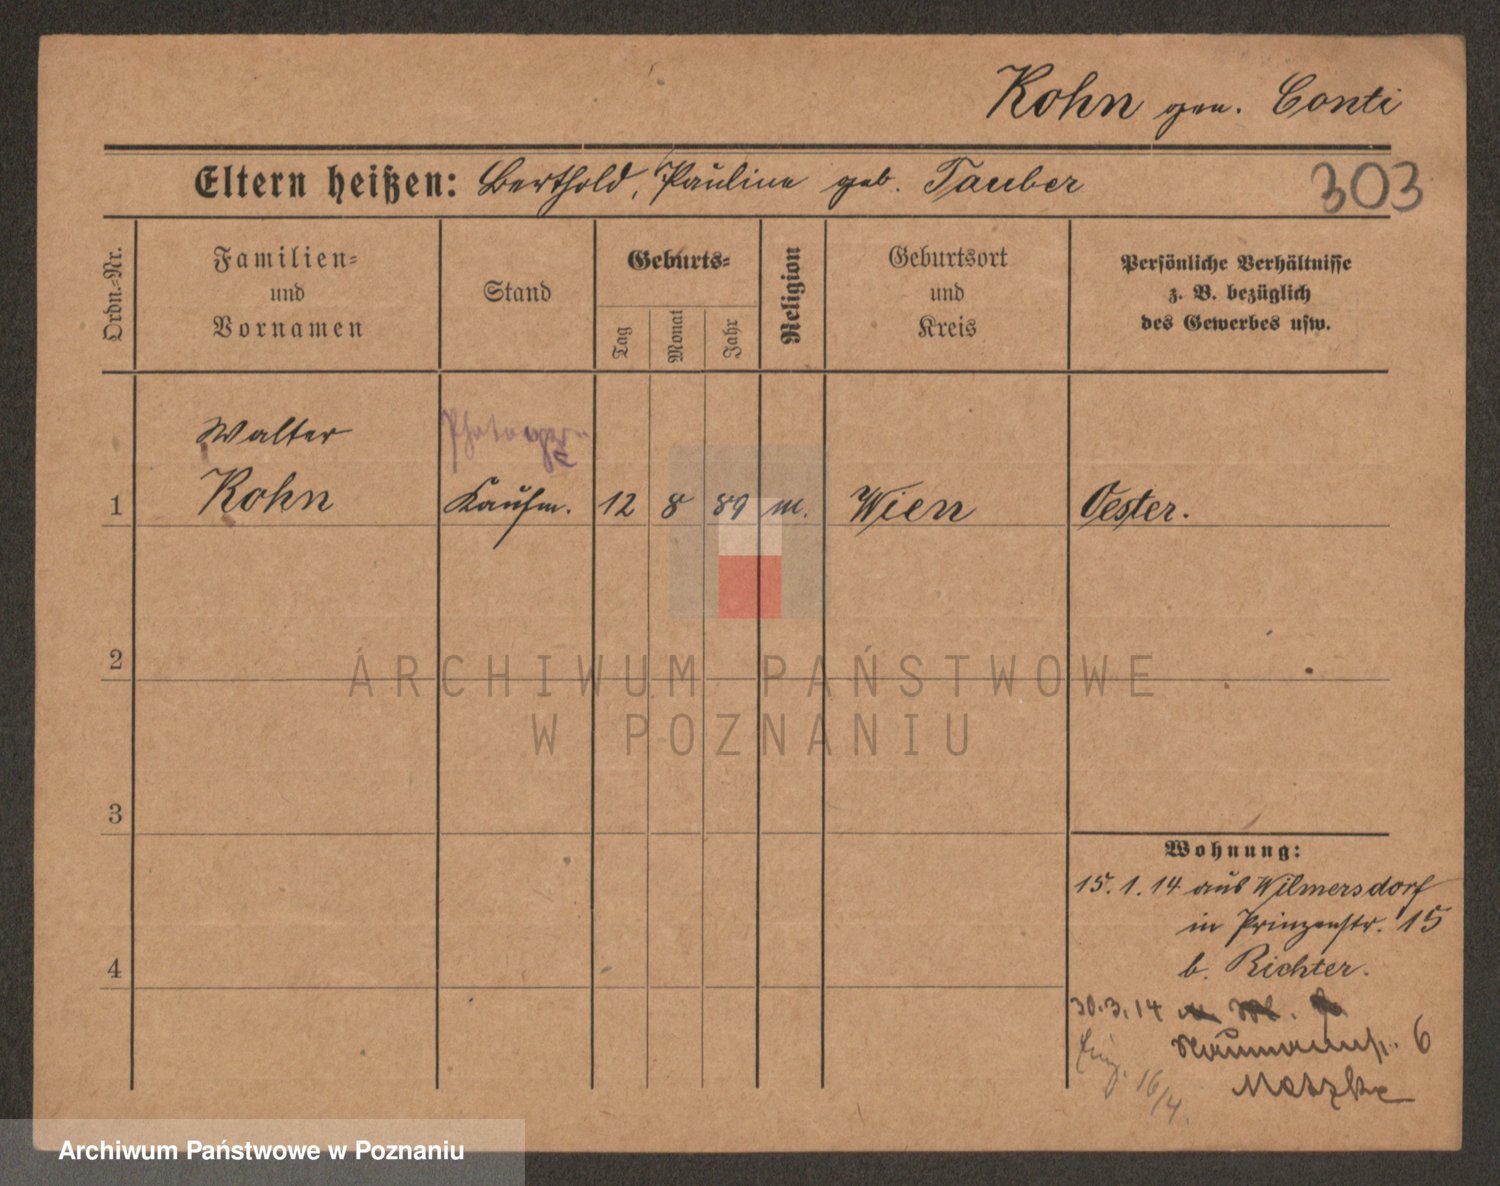 Kohn gen. Conti
Eltern heißen: Berthold, Pauline geb. Tauber
303
Ordn.-Nr.
Familien-
und
Vornamen
Stand
Geburts-
Tag
Monat
Jahr
Religion
Geburtsort
und
Kreis
Persönliche Verhältnisse
z. B. bezüglich
des Gewerbes usw.
Walter
1 Kohn Kaufm. 12 8 89 m. Wien Oester.
2
ARCHIWUM PAŃSTWOWE
W POZNANIU
3
Wohnung:
15.1.14 aus Wilmersdorf
in Prinzenstr. 15
4 b. Richter.
30.3.14
Naumannstr. 6
16/4.
Archiwum Państwowe w Poznaniu